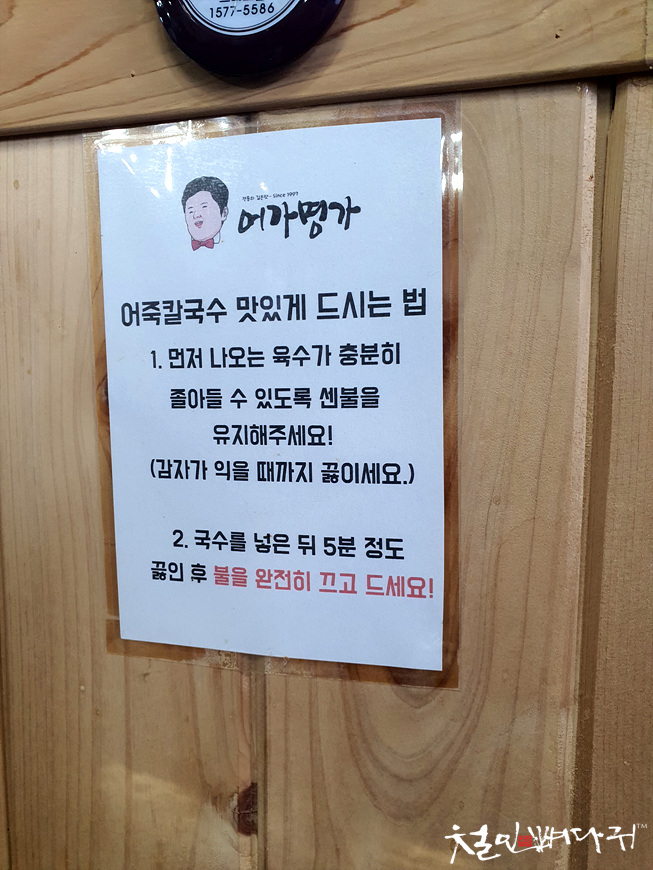 1577-5586
전통의 깊은맛~ Since 1997
어가명가
어죽칼국수 맛있게 드시는 법
1. 먼저 나오는 육수가 충분히
졸아들 수 있도록 센불을
유지해주세요!
(감자가 익을 때까지 끓이세요.)
2. 국수를 넣은 뒤 5분 정도
끓인 후 불을 완전히 끄고 드세요!
철민뼈다귀™